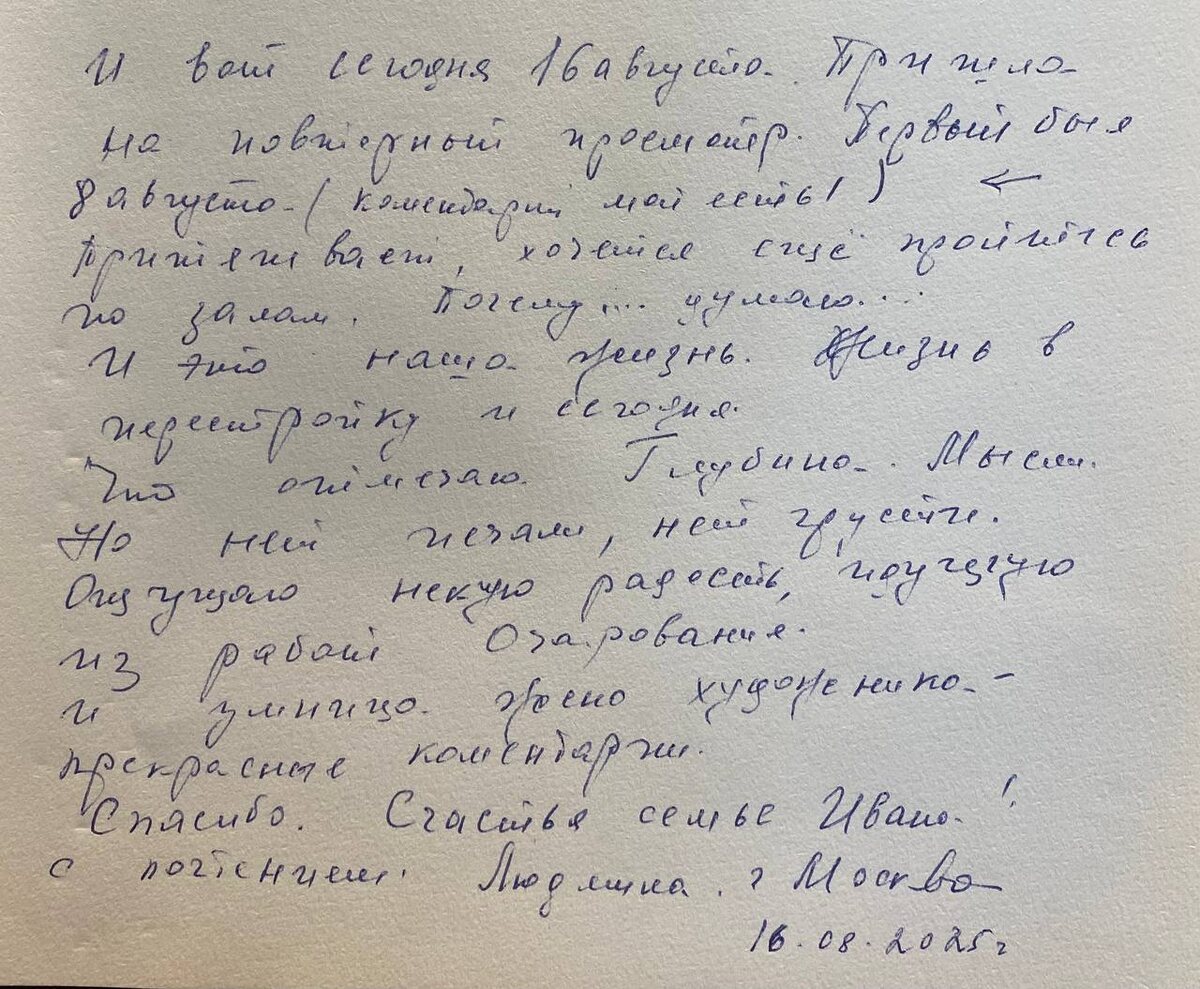 И вот сегодня 16 августа. Пришла
на повторный просмотр. Первый был
8 августа (коментарий мой есть!) ←
Притягивает, хочется ещё пройтись
по залам. Почему.... думаю....
И это наша жизнь. Жизнь в
перестройку и сегодня.
Что отмечаю. Глубина. Мысли.
Но нет печали, нет грусти.
Ощущаю некую радость, идущую
из работ Очарования.
и умница жена художника -
прекрасные коментарии.
Спасибо. Счастья семье Ивана!
с почтением. Людмила. г Москва
16.08.2025г